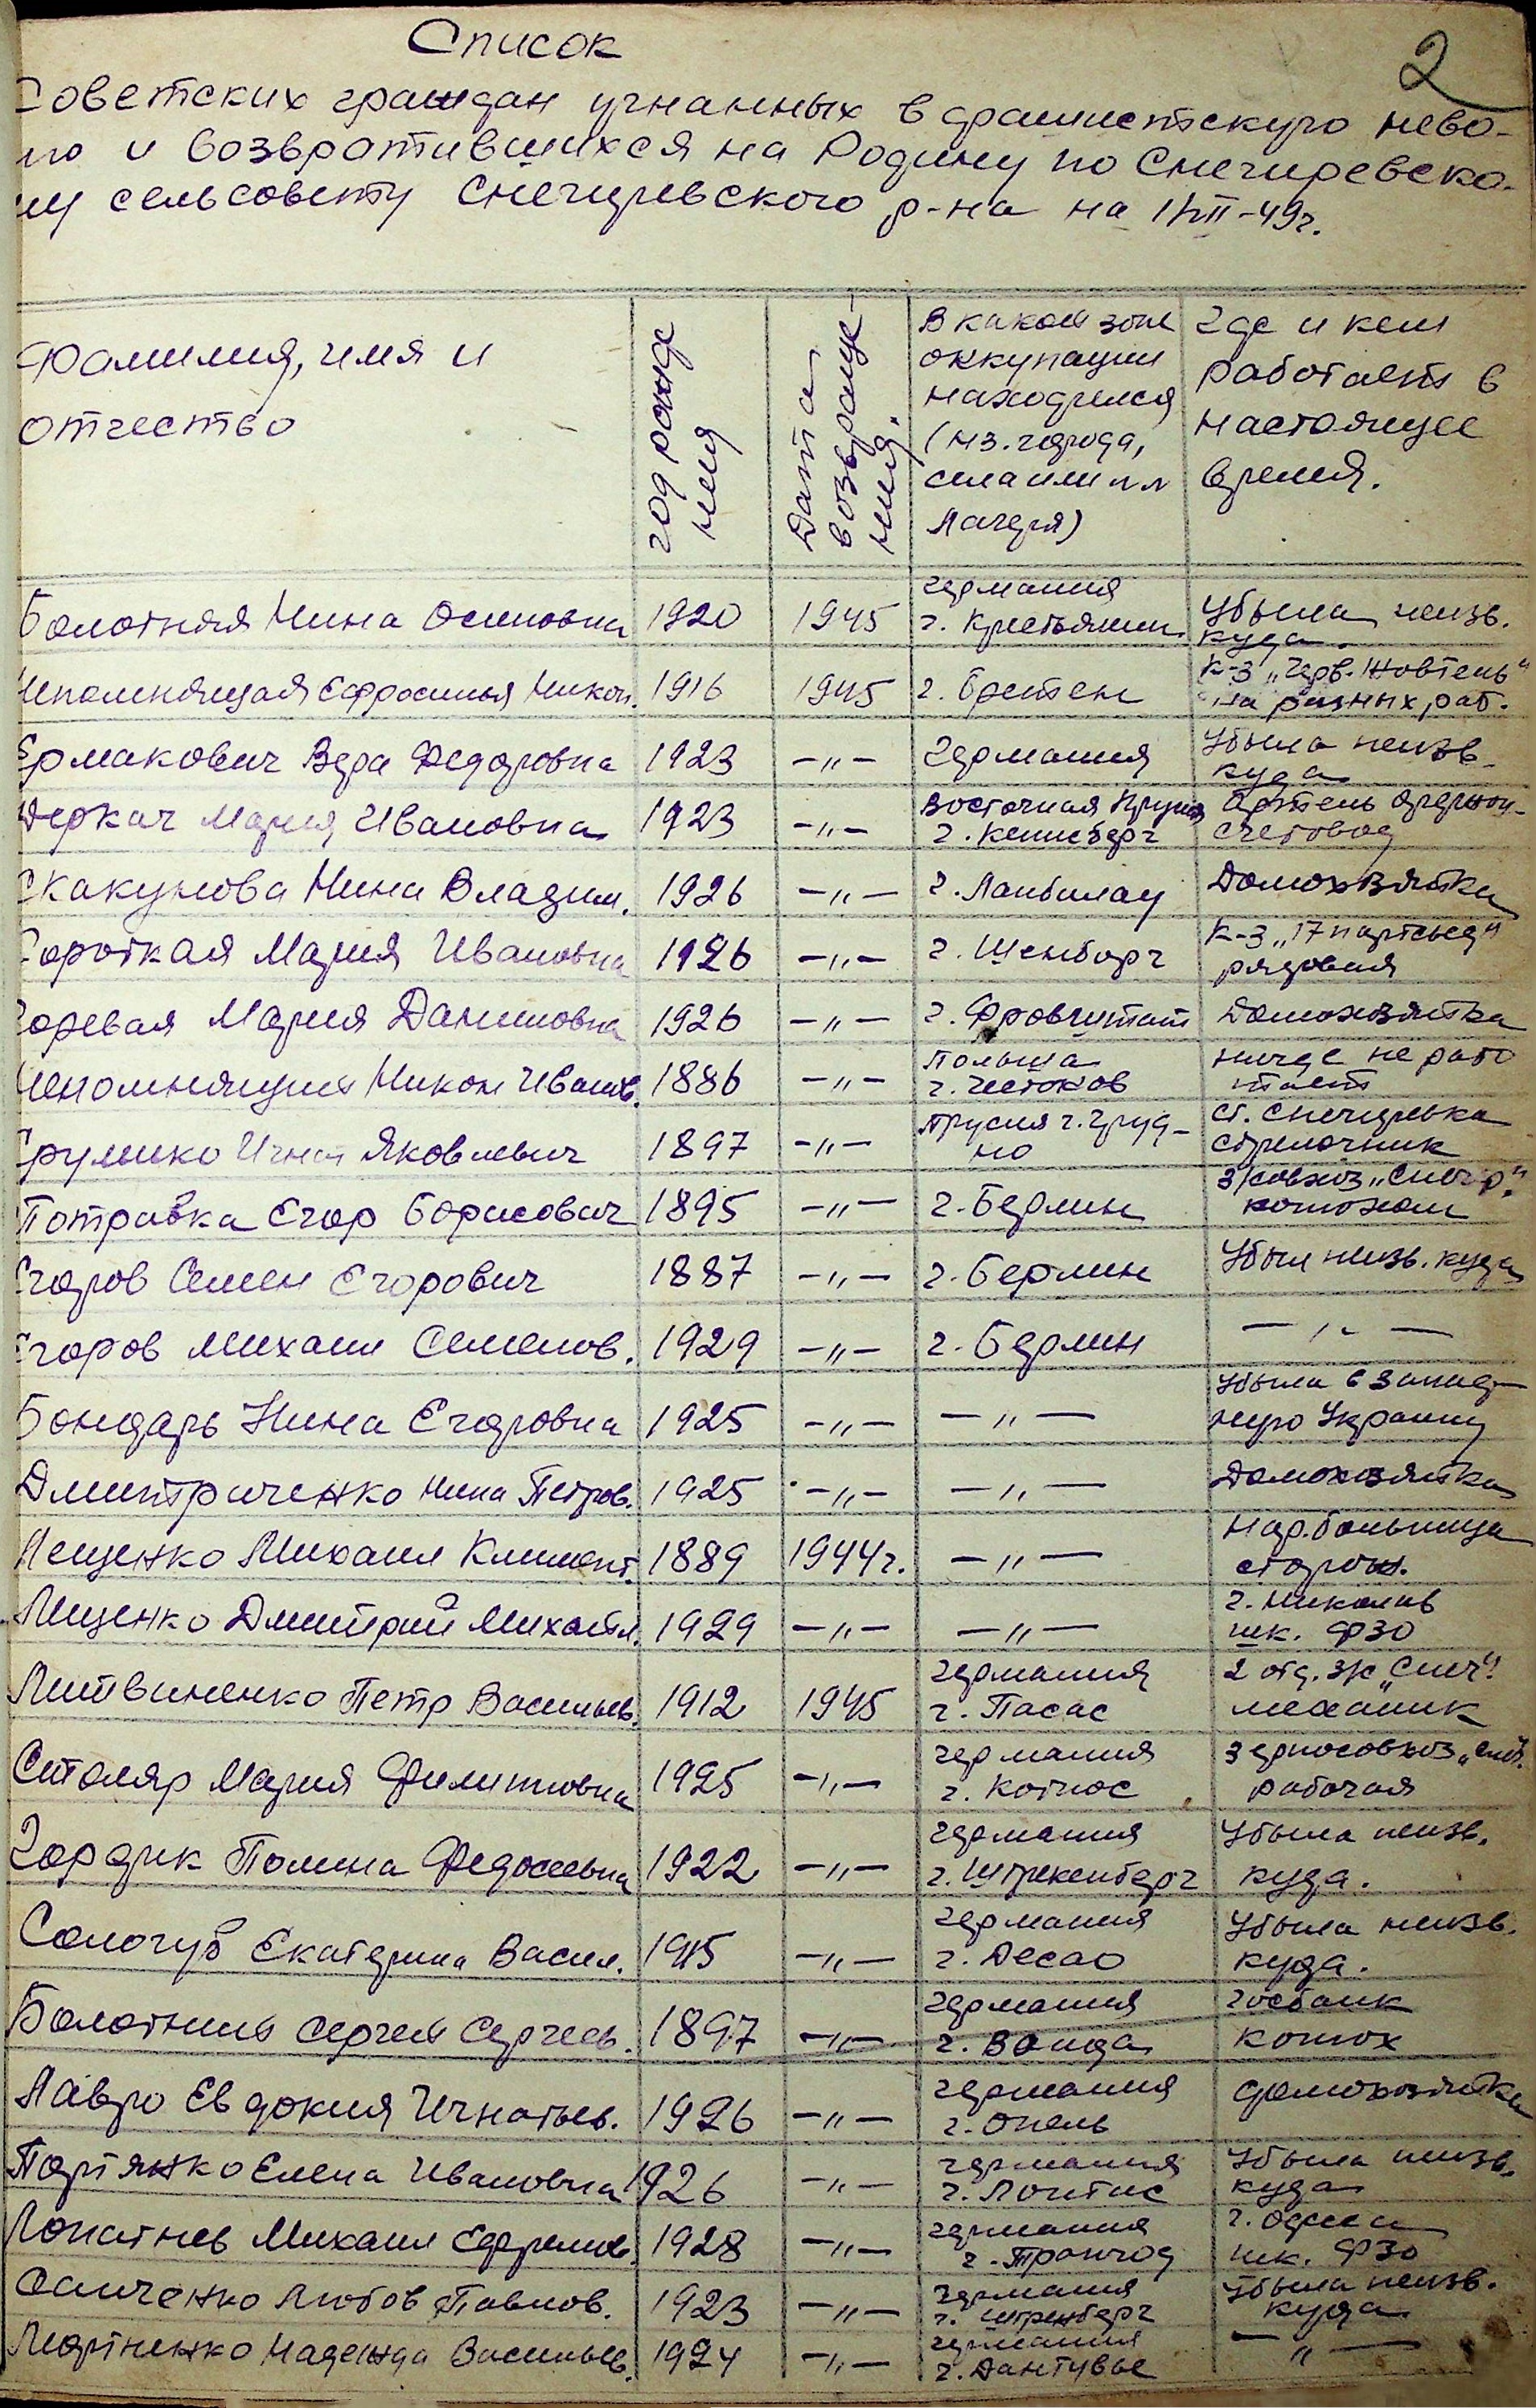 Список
2
Советских граждан угнанных в фашистскую нево-
лю и возвратившихся на Родину по Снегиревско-
му сельсовету Снегиревского р-на на 1/VII-49г.
Фамилия, имя и
отчество
год рожде
ния
Дата
возвраще-
ния.
В какой зоне
оккупации
находился
(из. города,
села или
лагеря)
Где и кем
работает в
настоящее
время.
Болотная Нина Осиповна 1920 1945 Германия
г. Крестьянин Убыла неизв.
куда.
Непомнящая Ефросинья Никон. 1916 1945 г. Бремен К-з „Черв. Жовтень"
на разных раб.
Ермакович Вера Федоровна 1923 -„- Германия Убыла неизв.
куда
Деркач Мария Ивановна 1923 -„- Восточная Прусия
г. Кенисберг Артель
счетовод
Скакунова Нина Владим. 1926 -„- г. Ланбилау Домохозяйка
Короткая Мария Ивановна 1926 -„- г. Шенборг К-з „17 партсьезд"
рядовая
Горевая Мария Даниловна 1926 -„- г. Фровиштат Домохозяйка
Непомнящий Никон Иванов. 1886 -„- Польша
г. Честоков нигде не рабо
тает
Грушко Игнат Яковлевич 1897 -„- Прусия г. Груд-
но ст. Снегиревка
стрелочник
Потравка Егор Борисович 1895 -„- г. Берлин з/совхоз „Снегир."
конюхом
Егоров Семен Егорович 1887 -„- г. Берлин Убыл неизв. куда
Егоров Михаил Семенов. 1929 -„- г. Берлин -„-
Бондарь Нина Егоровна 1925 -„- -„- Убыла в запад-
ную Украину
Дмитриченко Нина Петров. 1925 -„- -„- Домохозяйка
Лещенко Михаил Климент. 1889 1944г. -„- Нар. больница
сторож.
Лищенко Дмитрий Михайл. 1929 -„- -„- г. Николаев
шк. ФЗО
Литвиненко Петр Васильев. 1912 1945 Германия
г. Пасас 2 отд. з/с „Снег".
механик
Столяр Мария Филиповна 1925 -„- Германия
г. Котнос Зерносовхоз „Снег.
рабочая
Гордик Полина Федосеевна 1922 -„- Германия
г. Штрекенберг Убыла неизв.
куда.
Сологуб Екатерина Васил. 1915 -„- Германия
г. Десао Убыла неизв.
куда.
Болотний Сергей Сергеев. 1897 -„- Германия
г. Ванда Госбанк
конюх
Лавро Евдокия Игнатьев. 1926 -„- Германия
г. Опель домохозяйка
Портянко Елена Ивановна 1926 -„- Германия
г. Лонтис Убыла неизв.
куда
Лопатнев Михаил Ефремов. 1928 -„- Германия
г. Транчод г. Одесса
шк. ФЗО
Санченко Любов Павлов. 1923 -„- Германия
г. Штренберг Убыла неизв.
куда
Мартненко Надежда Васильев. 1924 -„- Германия
г. Дантувье -„-